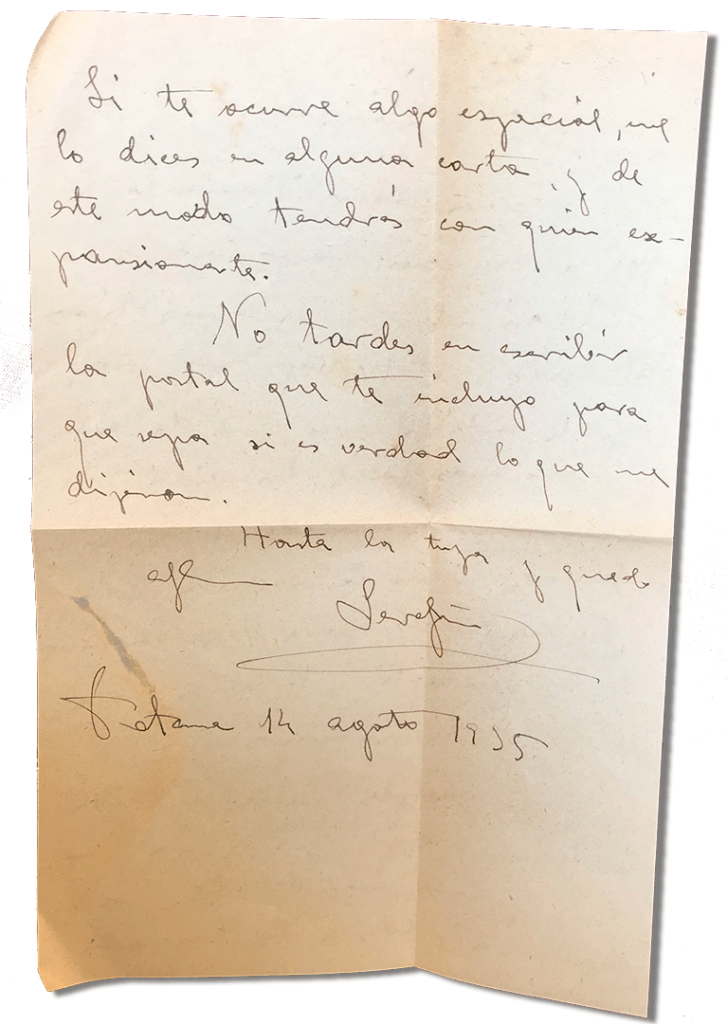 Si te ocurre algo especial, me
lo dices en alguna carta, y de
este modo tendrás con quien ex-
pansionarte.
No tardes en escribir
la postal que te incluyo para
que sepa si es verdad lo que me
dijeron.
Hasta la tuya y quedo
afm
Serafín
Totana 14 agosto 1935